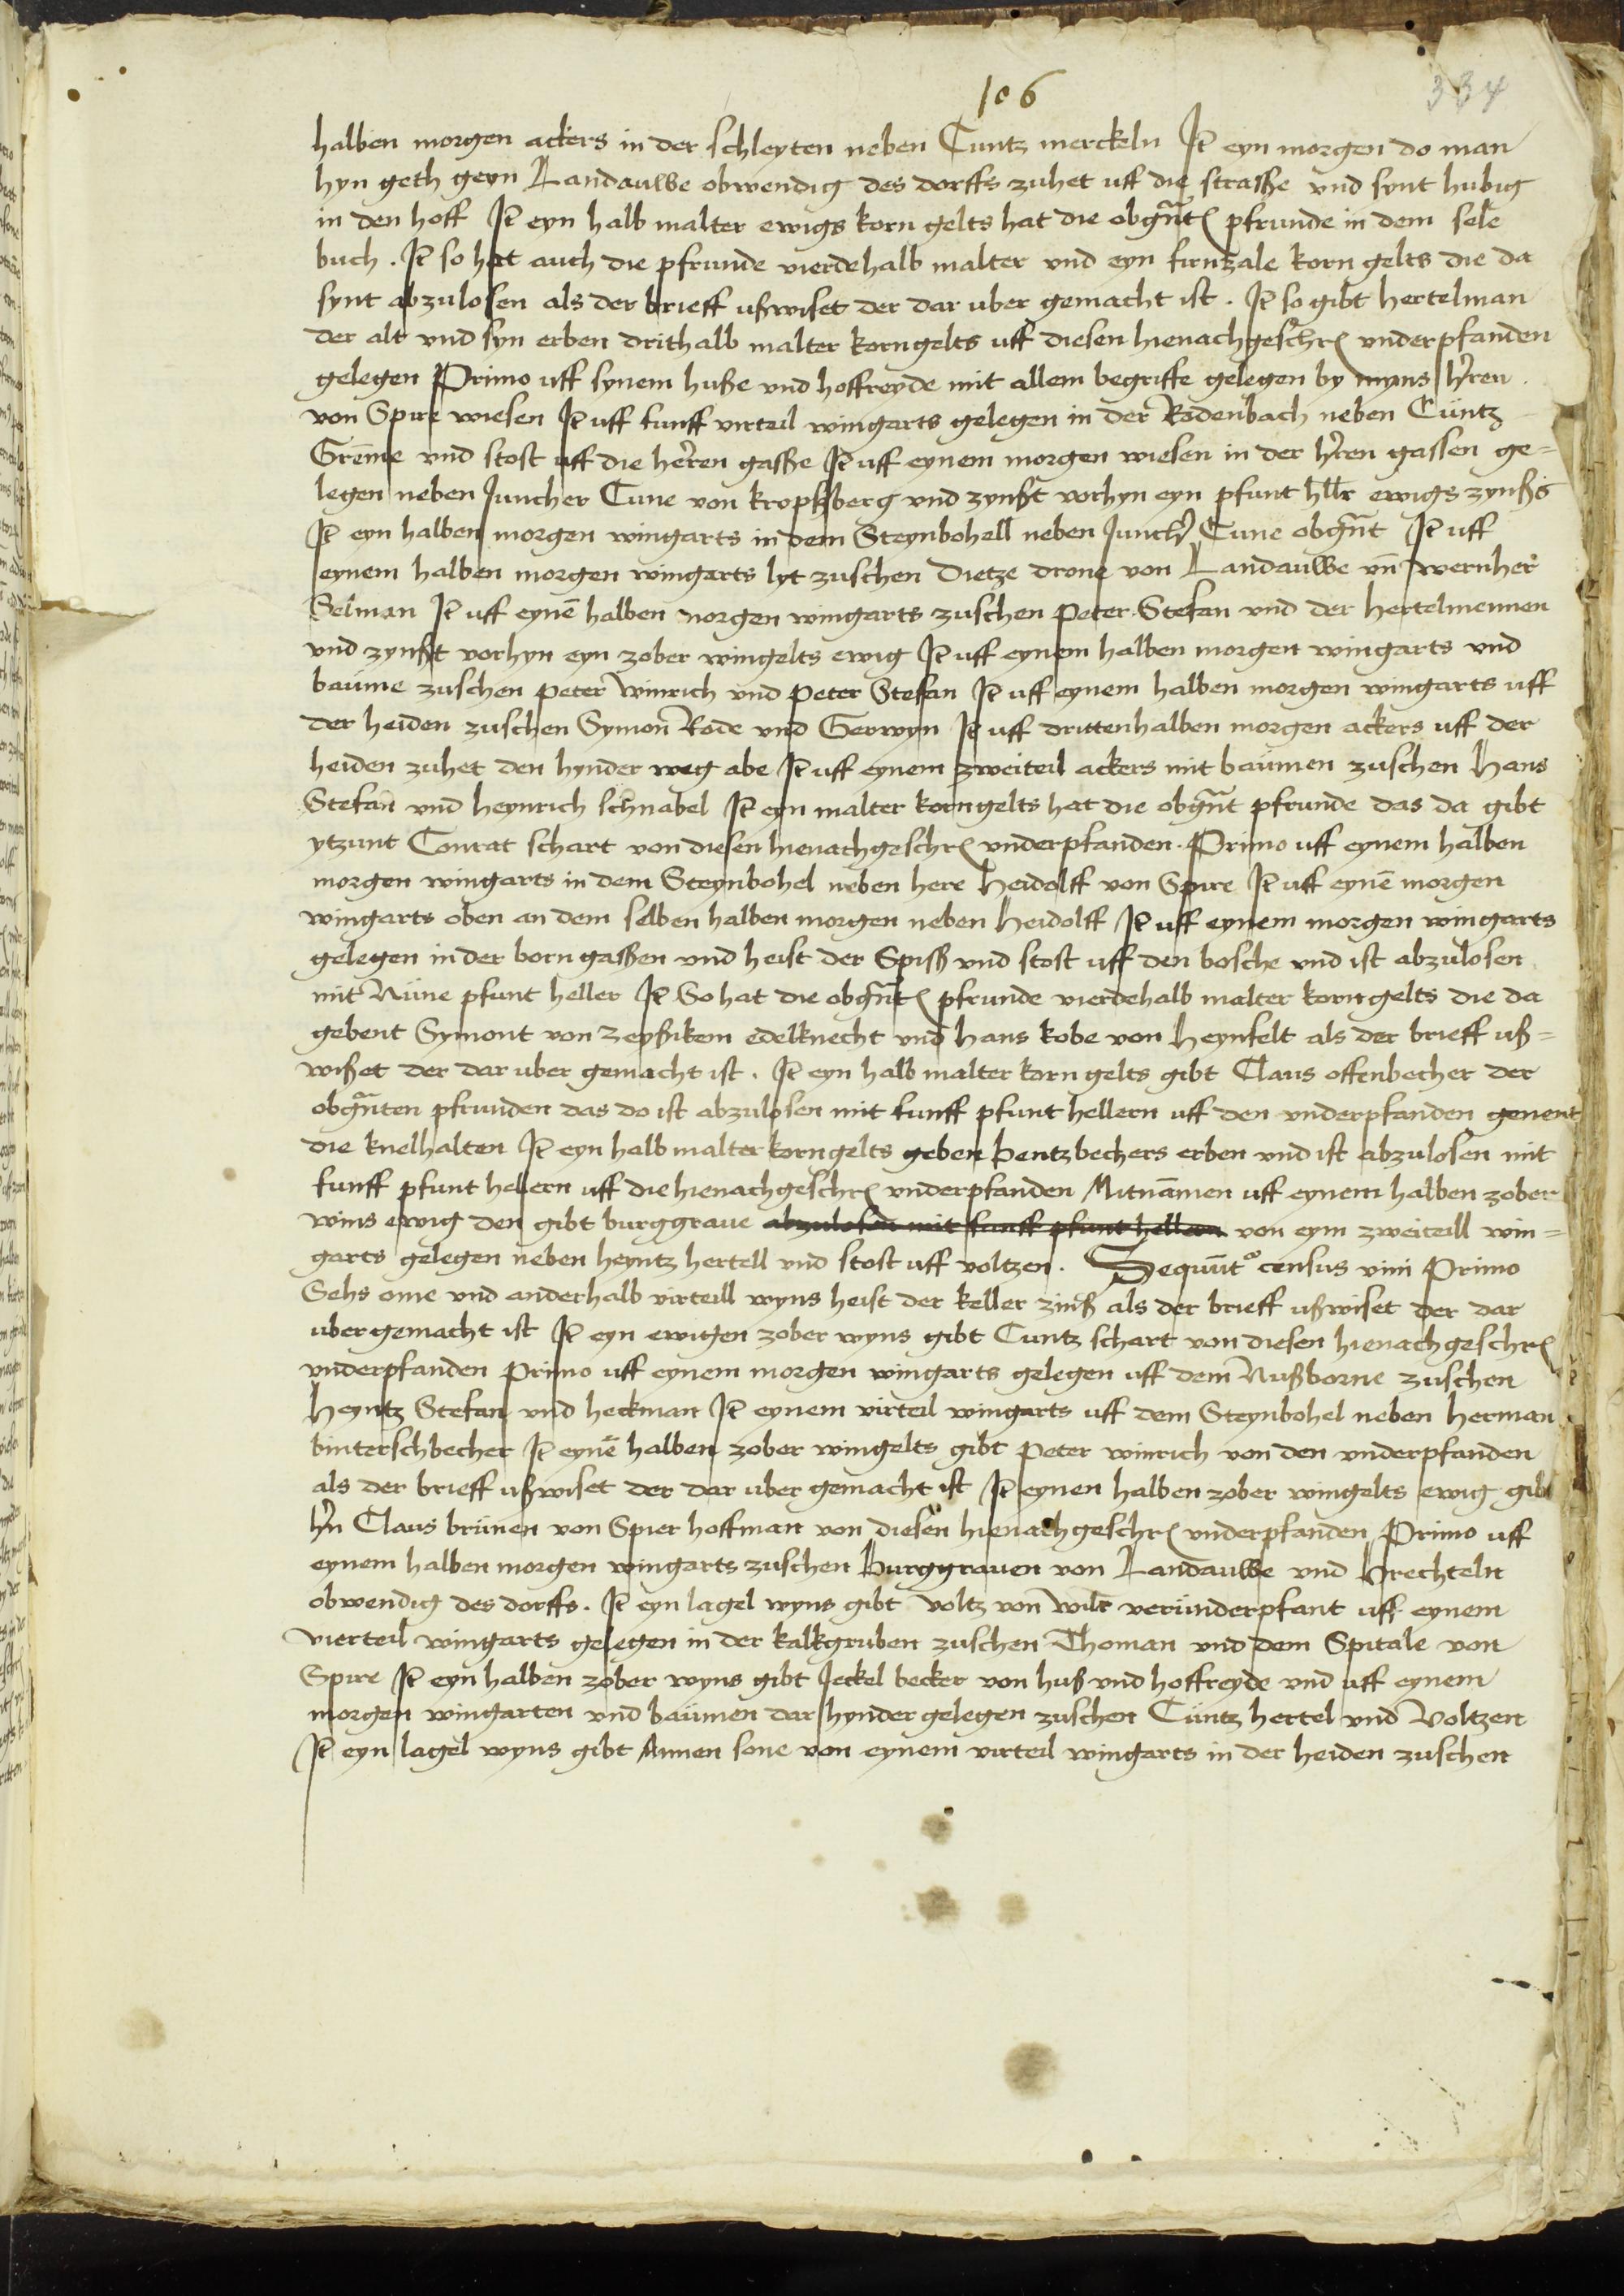 106
334
halben morgen ackers in der schleyten neben Cuntz merckeln Jt̄ eyn morgen do man
hyn geth geyn Landauwe obwendig des dorffs zuhet uff die strasße vnd synt hubig
in den hoff Jt̄ eyn halb malter ewigs korn gelts hat die obgn̄t pfrunde in dem sele
buch . Jt̄ so hat auch die pfrunde vierdehalb malter vnd eyn firnzale korn gelts die da
synt abzulosen als der brieff ußwiset der dar uber gemacht ist . Jt̄ so gibt hertelman
der alt vnd syn erben drithalb malter korngelts uff diesen hienachgeschr̄ vnderpfanden
gelegen Primo uff synem huße vnd hoffreyde mit allem begriffe gelegen by myns h'ren
von Spire wiesen Jt̄ uff funff virteil wingarts gelegen in der Rodenbach neben Cüntz
Greme vnd stost uff die herren gasße Jt̄ uff eynem morgen wiesen in der h'ren gassen ge=
legen neben Juncher Cune von kropfsberg vnd zynßt vorhyn eyn pfunt hllr ewigs zynßs
Jt̄ eyn halben morgen wingarts in dem Steynbohell neben Junch' Cune obgn̄t Jt̄ uff
eynem halben morgen wingarts lyt zuschen Dietze drone von Landauwe vn̄ wernher
Selman Jt̄ uff eynē halben morgen wingarts zuschen Peter Stefan vnd der hertelmennen
vnd zynßt vorhyn eyn zober wingelts ewig Jt̄ uff eynem halben morgen wingarts vnd
baüme zuschen peter winrich vnd Peter Stefan Jt̄ uff eynem halben morgen wingarts uff
der heiden zuschen Symon Rode vnd Gerwyn Jt̄ uff drittenhalben morgen ackers uff der
heiden zuhet den hynder weg abe Jt̄ uff eynem zweiteil ackers mit baümen zuschen Hans
Stefan vnd heynrich schnabel Jt̄ eyn malter korngelts hat die obgn̄t pfrunde das da gibt
ytzunt Conrat schart von diesen hienachgeschr̄ vnderpfanden . Primo uff eynem halben
morgen wingarts in dem Steynbohel neben here Heidolff von Spire Jt̄ uff eynē morgen
wingarts oben an dem selben halben morgen neben Heidolff Jt̄ uff eynem morgen wingarts
gelegen in der born gasßen vnd heist der Spisß vnd stost uff den bosche vnd ist abzulosen
mit Nüne pfunt heller Jt̄ So hat die obgn̄t pfrunde vierdehalb malter korngelts die da
gebent Symont von Zeyßikem edelknecht vnd Hans kobe von Heynfelt als der brieff uß=
wiset der dar uber gemacht ist . Jt̄ eyn halb malter korn gelts gibt Claus offenbecher der
obgn̄ten pfrunden das do ist abzulosen mit funff pfunt hellern uff den vnderpfanden genent
die knelhalten Jt̄ eyn halb malter korngelts geben Hentzbechers erben vnd ist abzulosen mit
funff pfunt hellern uff die hienachgeschr̄ vnderpfanden Mitnāmen uff eynem halben zober
wins ewig den gibt burggraue abzulosen mit funff pfunt hellern von eym zweiteill win=
garts gelegen neben heyntz hertell vnd stost uff voltzen . Sequūt° census vini Primo
Sehs ome vnd anderhalb virteill wyns heist der keller zinß als der brieff ußwiset der dar
uber gemacht ist Jt̄ eyn ewigen zober wyns gibt Cuntz schart von diesen hienachgeschr̄
vnderpfanden Primo uff eynem morgen wingarts gelegen uff dem Nußborne zuschen
Heyntz Stefan vnd heckman Jt̄ eynem virteil wingarts uff dem Steynbohel neben Herman
binterschbecher Jt̄ eynē halben zober wingelts gibt Peter winrich von den vnderpfanden
als der brieff ußwiset der dar uber gemacht ist Jt̄ eynen halben zober wingelts ewig gibt
h'n Claus brünen von Spier hoffman von diesen hienachgeschr̄ vnderpfanden Primo uff
eynem halben morgen wingarts zuschen Burggrauen von Landauwe vnd Brechteln
obwendig des dorffs . Jt̄ eyn lagel wyns gibt Voltz von wilr veründerpfant uff eynem
vierteil wingarts gelegen in der kalkgruben zuschen Thoman vnd dem Spitale von
Spire Jt̄ eyn halben zober wyns gibt Jeckel becker von huß vnd hoffreyde vnd uff eynem
morgen wingarten vnd baümen dar hynder gelegen zuschen Cüntz hertel vnd Voltzen
Jt̄ eyn lagel wyns gibt Annen sone von eynem virteil wingarts in der heiden zuschen